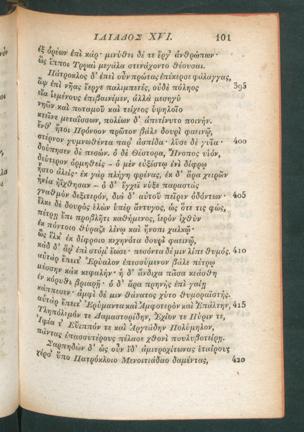 ΙΛΙΑΔΟΣ XVI. 101
ἐξ ὀρέων ἐπὶ κάρ· μινύθει δέ τε ἔργ' ἀνθρώπων·
ὣς ἵπποι Τρῳαὶ μεγάλα στενάχοντο θέουσαι.
Πάτροκλος δ' ἐπεὶ οὖν πρώτας ἐπέκερσε φάλαγγας,
ἂψ ἐπὶ νῆας ἔεργε παλιμπετὲς, οὐδὲ πόληος 395
εἴα ἱεμένους ἐπιβαινέμεν, ἀλλὰ μεσηγὺ
νηῶν καὶ ποταμοῦ καὶ τείχεος ὑψηλοῖο
κτεῖνε μεταΐσσων, πολέων δ' ἀπετίνυτο ποινήν.
ἔνθ' ἤτοι Πρόνοον πρῶτον βάλε δουρὶ φαεινῷ,
στέρνον γυμνωθέντα παρ' ἀσπίδα· λῦσε δὲ γυῖα· 400
δούπησεν δὲ πεσών. ὁ δὲ Θέστορα, Ἤνοπος υἱὸν,
δεύτερον ὁρμηθείς – ὁ μὲν εὐξέστῳ ἐνὶ δίφρῳ
ἧστο ἀλείς· ἐκ γὰρ πλήγη φρένας, ἐκ δ' ἄρα χειρῶν
ἡνία ἠΐχθησαν – ὁ δ' ἔγχεϊ νύξε παραστὰς
γναθμὸν δεξιτερὸν, διὰ δ' αὐτοῦ πεῖρεν ὀδόντων· 405
ἕλκε δὲ δουρὸς ἑλὼν ὑπὲρ ἄντυγος, ὡς ὅτε τις φὼς,
πέτρῃ ἔπι προβλῆτι καθήμενος, ἱερὸν ἰχθὺν
ἐκ πόντοιο θύραζε λίνῳ καὶ ἤνοπι χαλκῷ·
ὣς ἕλκ' ἐκ δίφροιο κεχηνότα δουρὶ φαεινῷ,
κὰδ δ' ἄρ' ἐπὶ στόμ' ἔωσε· πεσόντα δέ μιν λίπε θυμός. 410
αὐτὰρ ἔπειτ' Ἐρύαλον ἐπεσσύμενον βάλε πέτρῳ
μέσσην κὰκ κεφαλήν· ἡ δ' ἄνδιχα πᾶσα κεάσθη
ἐν κόρυθι βριαρῇ· ὁ δ' ἄρα πρηνὴς ἐπὶ γαίῃ
κάππεσεν· ἀμφὶ δέ μιν θάνατος χύτο θυμοραϊστής.
αὐτὰρ ἔπειτ' Ἐρύμαντα καὶ Ἀμφοτερὸν καὶ Ἐπάλτην, 415
Τληπόλεμόν τε Δαμαστορίδην, Ἐχίον τε Πύριν τε,
Ἰφέα τ' Εὔιππόν τε καὶ Ἀργεάδην Πολύμηλον,
πάντας ἐπασσυτέρους πέλασε χθονὶ πουλυβοτείρῃ.
Σαρπηδὼν δ' ὡς οὖν ἴδ' ἀμιτροχίτωνας ἑταίρους
χέρσ' ὕπο Πατρόκλοιο Μενοιτιάδαο δαμέντας, 420